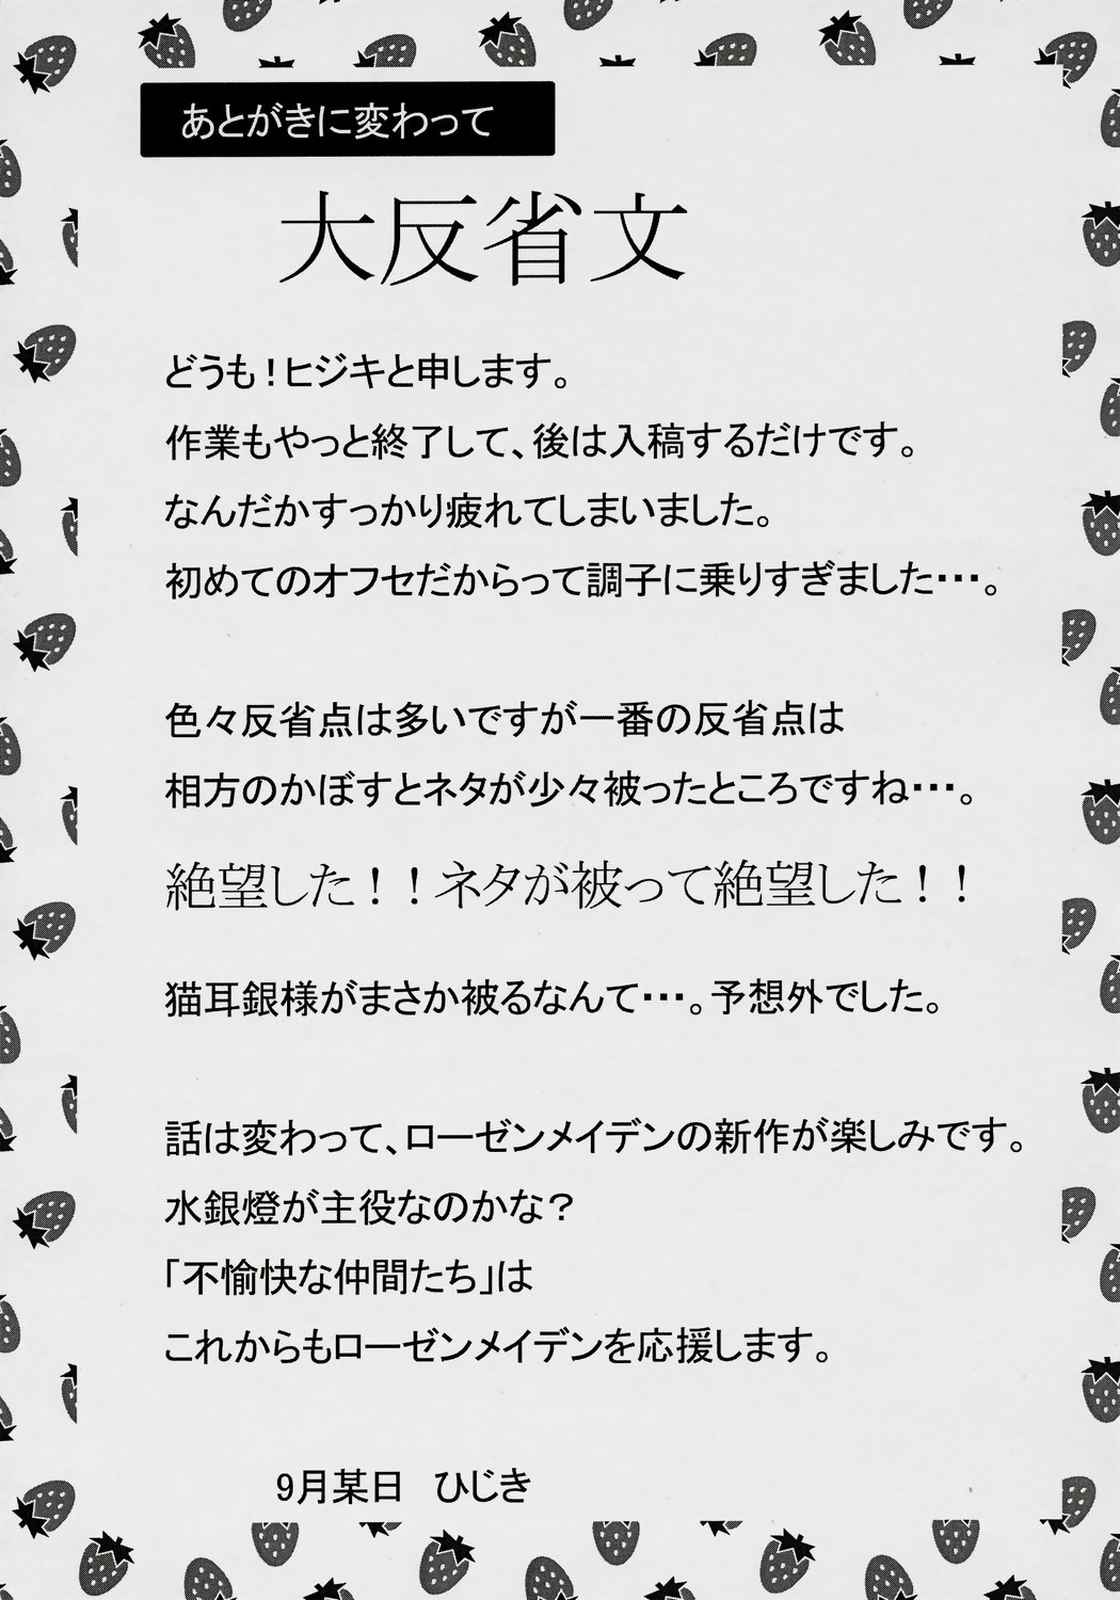 あとがきに変わって
大反省文
どうも！ヒジキと申します。
作業もやっと終了して、後は入稿するだけです。
なんだかすっかり疲れてしまいました。
初めてのオフセだからって調子に乗りすぎました・・・。
色々反省点は多いですが一番の反省点は
相方のかぼすとネタが少々被ったところですね・・・。
絶望した！！ネタが被って絶望した！！
猫耳銀様がまさか被るなんて・・・。予想外でした。
話は変わって、ローゼンメイデンの新作が楽しみです。
水銀燈が主役なのかな？
「不愉快な仲間たち」は
これからもローゼンメイデンを応援します。
9月某日　ひじき